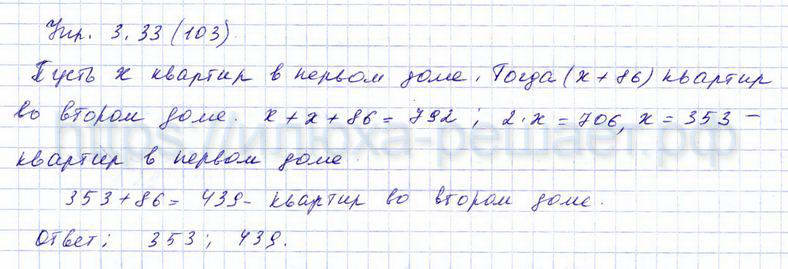 Упр. 3.33 (103).
Пусть x квартир в первом доме. Тогда (x + 86) квартир
во втором доме. x + x + 86 = 792 ; 2·x = 706, x = 353 –
квартир в первом доме.
353 + 86 = 439 - квартир во втором доме.
Ответ: 353 ; 439.
https://илюха-решает.рф